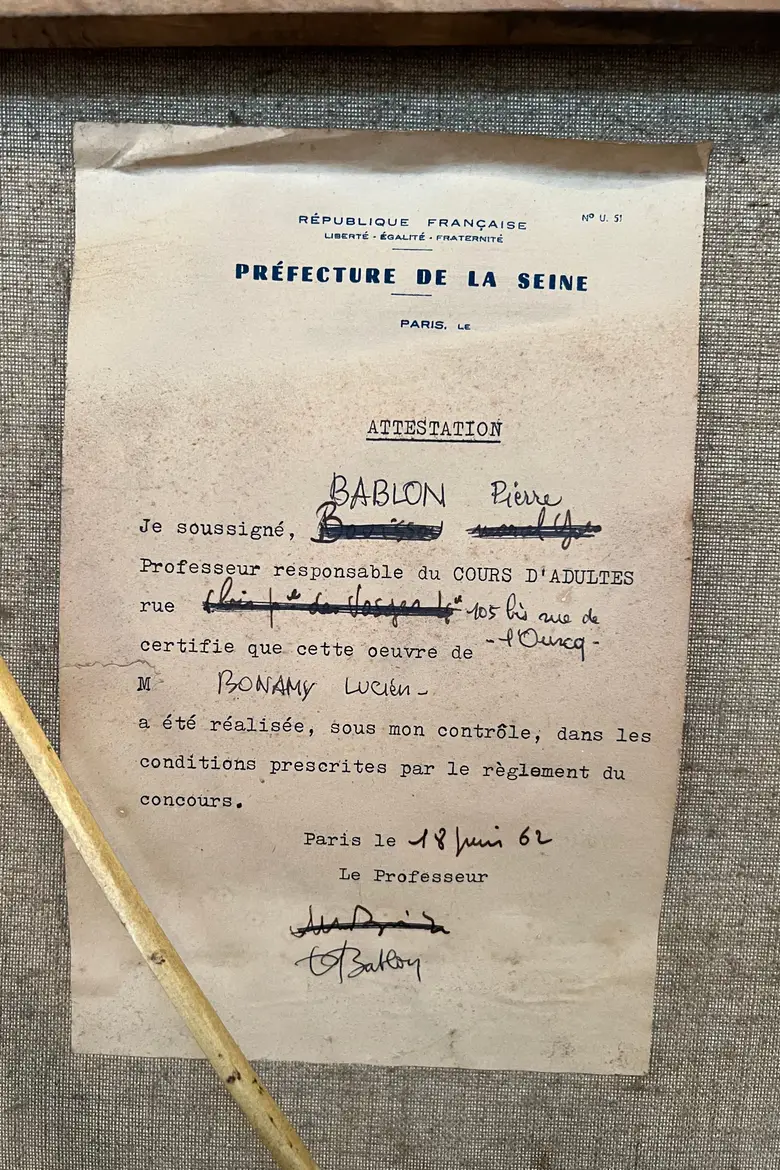 RÉPUBLIQUE FRANÇAISE
Nº U. 51
LIBERTÉ - ÉGALITÉ - FRATERNITÉ
PRÉFECTURE DE LA SEINE
PARIS, LE
ATTESTATION
BABLON Pierre
Je soussigné,
Professeur responsable du COURS D'ADULTES
rue 105 bis rue de
- l'Ourcq -
certifie que cette oeuvre de
M BONAMY Lucien -
a été réalisée, sous mon contrôle, dans les
conditions prescrites par le règlement du
concours.
Paris le 18 juin 62
Le Professeur
Bablon